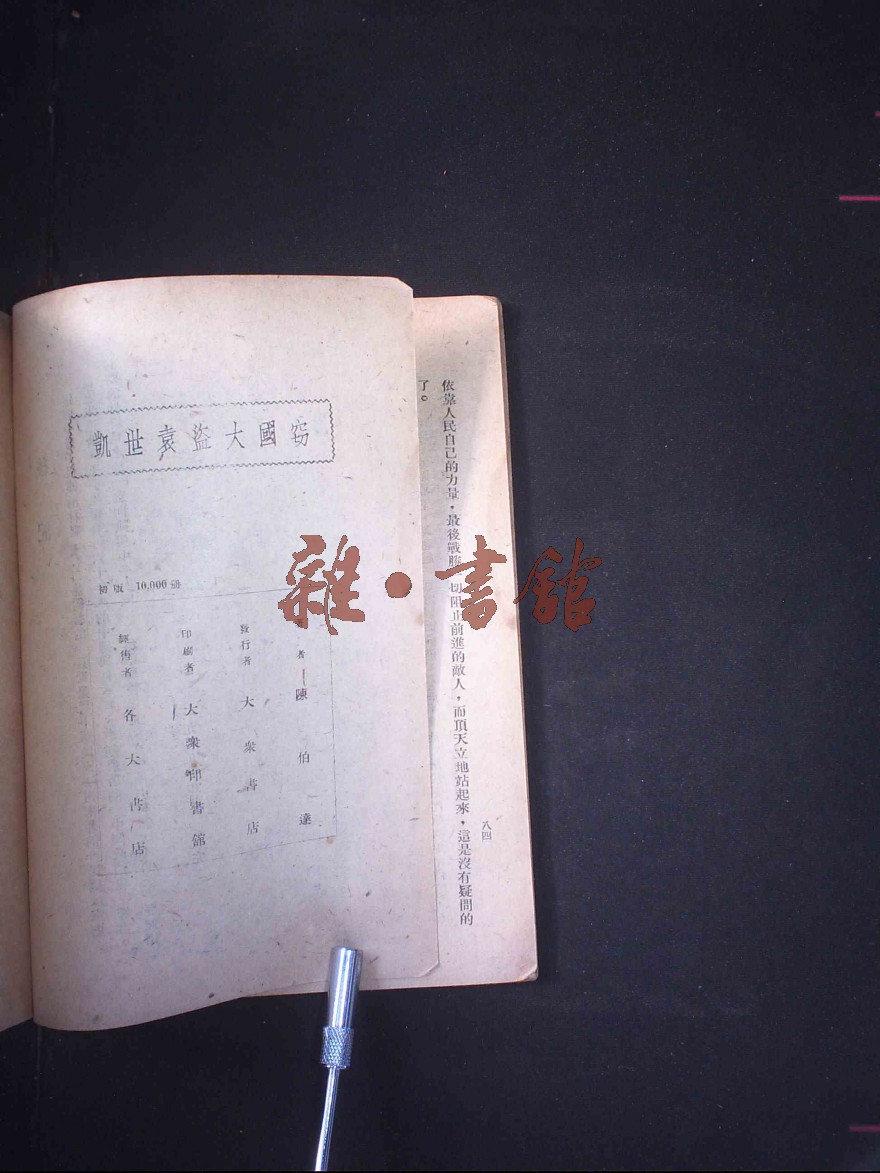 竊國大盜袁世凱
初版 10,000 册
著者 陳伯達
發行者 大衆書店
印刷者 大衆印書館
經售者 各大書店
依靠人民自己的力量，最後戰勝一切阻止前進的敵人，而頂天立地站起來，這是沒有疑問的
了。
八四
雜·書館